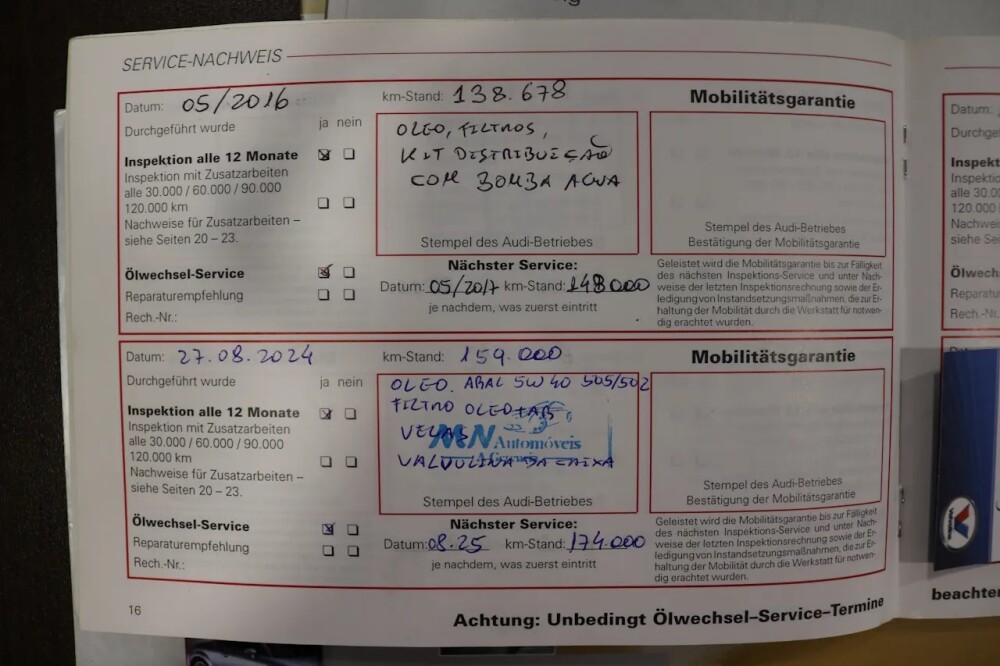 SERVICE-NACHWEIS
Datum: 05/2016
km-Stand: 138.678
Mobilitätsgarantie
Durchgeführt wurde
ja nein
Inspektion alle 12 Monate
Inspektion mit Zusatzarbeiten
alle 30.000 / 60.000 / 90.000
120.000 km
Nachweise für Zusatzarbeiten –
siehe Seiten 20 – 23.
OLEO, FILTROS,
KIT DISTRIBUIÇÃO
COM BOMBA AGUA
Stempel des Audi-Betriebes
Stempel des Audi-Betriebes
Bestätigung der Mobilitätsgarantie
Ölwechsel-Service
Reparaturempfehlung
Rech.-Nr.:
Nächster Service:
Datum: 05/2017 km-Stand: 148000
je nachdem, was zuerst eintritt
Geleistet wird die Mobilitätsgarantie bis zur Fälligkeit
des nächsten Inspektions-Service und unter Nach-
weise der letzten Inspektionsrechnung sowie der Er-
ledigung von Instandsetzungsmaßnahmen, die zur Er-
haltung der Mobilität durch die Werkstatt für notwen-
dig erachtet wurden.
Datum: 27.08.2024
km-Stand: 159.000
Mobilitätsgarantie
Durchgeführt wurde
ja nein
Inspektion alle 12 Monate
Inspektion mit Zusatzarbeiten
alle 30.000 / 60.000 / 90.000
120.000 km
Nachweise für Zusatzarbeiten –
siehe Seiten 20 – 23.
OLEO. ABAL 5W40 505/502
FILTRO OLEO+AB
VELAS
MN Automóveis
VALVULINA DA CAIXA
Stempel des Audi-Betriebes
Stempel des Audi-Betriebes
Bestätigung der Mobilitätsgarantie
Ölwechsel-Service
Reparaturempfehlung
Rech.-Nr.:
Nächster Service:
Datum: 08.25 km-Stand: 174.000
je nachdem, was zuerst eintritt
Geleistet wird die Mobilitätsgarantie bis zur Fälligkeit
des nächsten Inspektions-Service und unter Nach-
weise der letzten Inspektionsrechnung sowie der Er-
ledigung von Instandsetzungsmaßnahmen, die zur Er-
haltung der Mobilität durch die Werkstatt für notwen-
dig erachtet wurden.
16
Achtung: Unbedingt Ölwechsel-Service-Termine
beachten